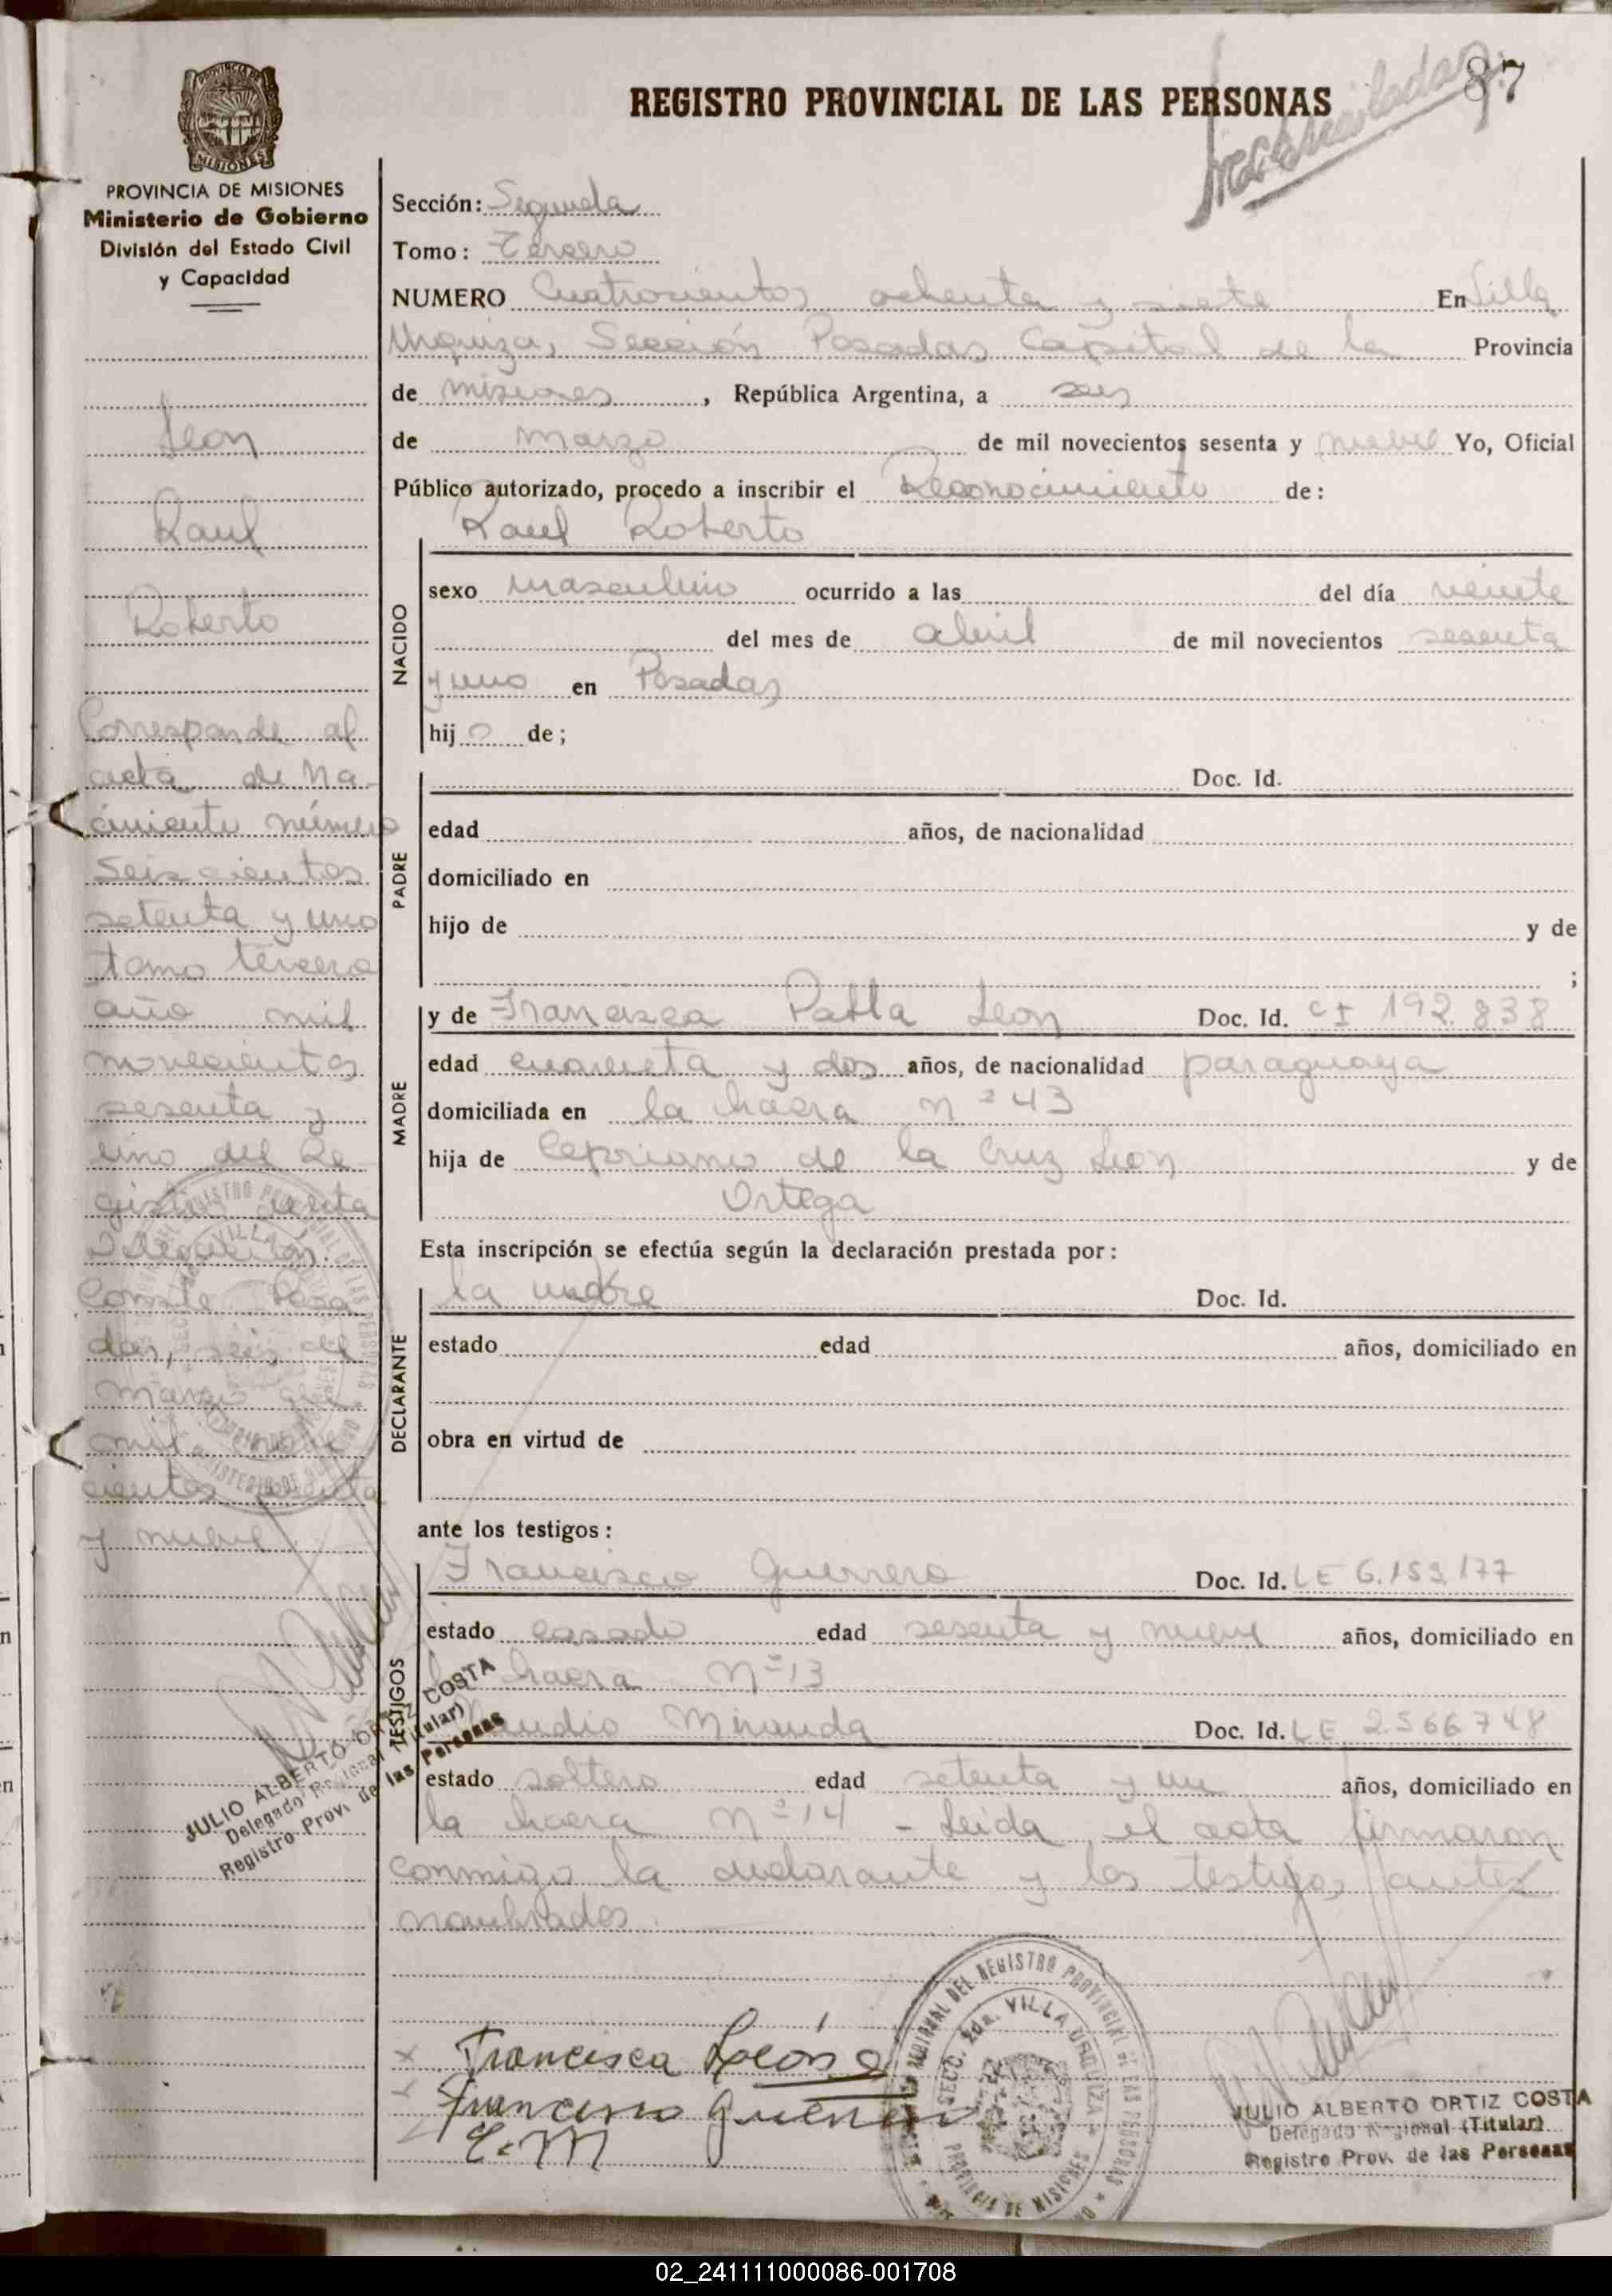 87
REGISTRO PROVINCIAL DE LAS PERSONAS
MISIONES
PROVINCIA DE MISIONES
Ministerio de Gobierno
División del Estado Civil
y Capacidad
Leon
Raul
Roberto
Corresponde al
acta de Na-
cimiento número
Seiscientos
setenta y uno
tomo tercero
año mil
novecientos
sesenta y
uno del Re-
gistro de esta
Delegación.
Conste Posa-
das, seis de
Marzo de
mil nove
cientos sesenta
y nueve
JULIO ALBERTO ORTIZ COSTA
Delegado Regional (Titular)
Registro Prov. de las Personas
Sección: Segunda
Tomo: Tercero
NUMERO Cuatrocientos ochenta y siete En Villa
Urquiza, Sección Posadas Capital de la Provincia
de misiones, República Argentina, a seis
de marzo de mil novecientos sesenta y nueve Yo, Oficial
Público autorizado, procedo a inscribir el Reconocimiento de:
Raul Roberto
NACIDO
sexo masculino ocurrido a las del día veinte
del mes de abril de mil novecientos sesenta
y uno en Posadas
hij o de;
PADRE
Doc. Id.
edad años, de nacionalidad
domiciliado en
hijo de y de
;
MADRE
y de Francisca Pabla Leon Doc. Id. CI 192.838
edad cuarenta y dos años, de nacionalidad paraguaya
domiciliada en la chacra nº 43
hija de Cepriano de la Cruz Leon y de
Ortega
Esta inscripción se efectúa según la declaración prestada por:
DECLARANTE
la madre Doc. Id.
estado edad años, domiciliado en
obra en virtud de
ante los testigos:
TESTIGOS
Francisco Guerrero Doc. Id. LE 6.153.177
estado casado edad sesenta y nueve años, domiciliado en
la chacra nº 13
Claudio Miranda Doc. Id. LE 2.566.748
estado soltero edad setenta y un años, domiciliado en
la chacra nº 14 - Leida el acta firmaron
conmigo la declarante y los testigos antes
nombrados.
x Francisca Leon
x Francisco Guerrero
C. M
SECC. 2da. VILLA URQUIZA
PROVINCIA DE MISIONES
JULIO ALBERTO ORTIZ COSTA
Delegado Regional (Titular)
Registro Prov. de las Personas
02_241111000086-001708